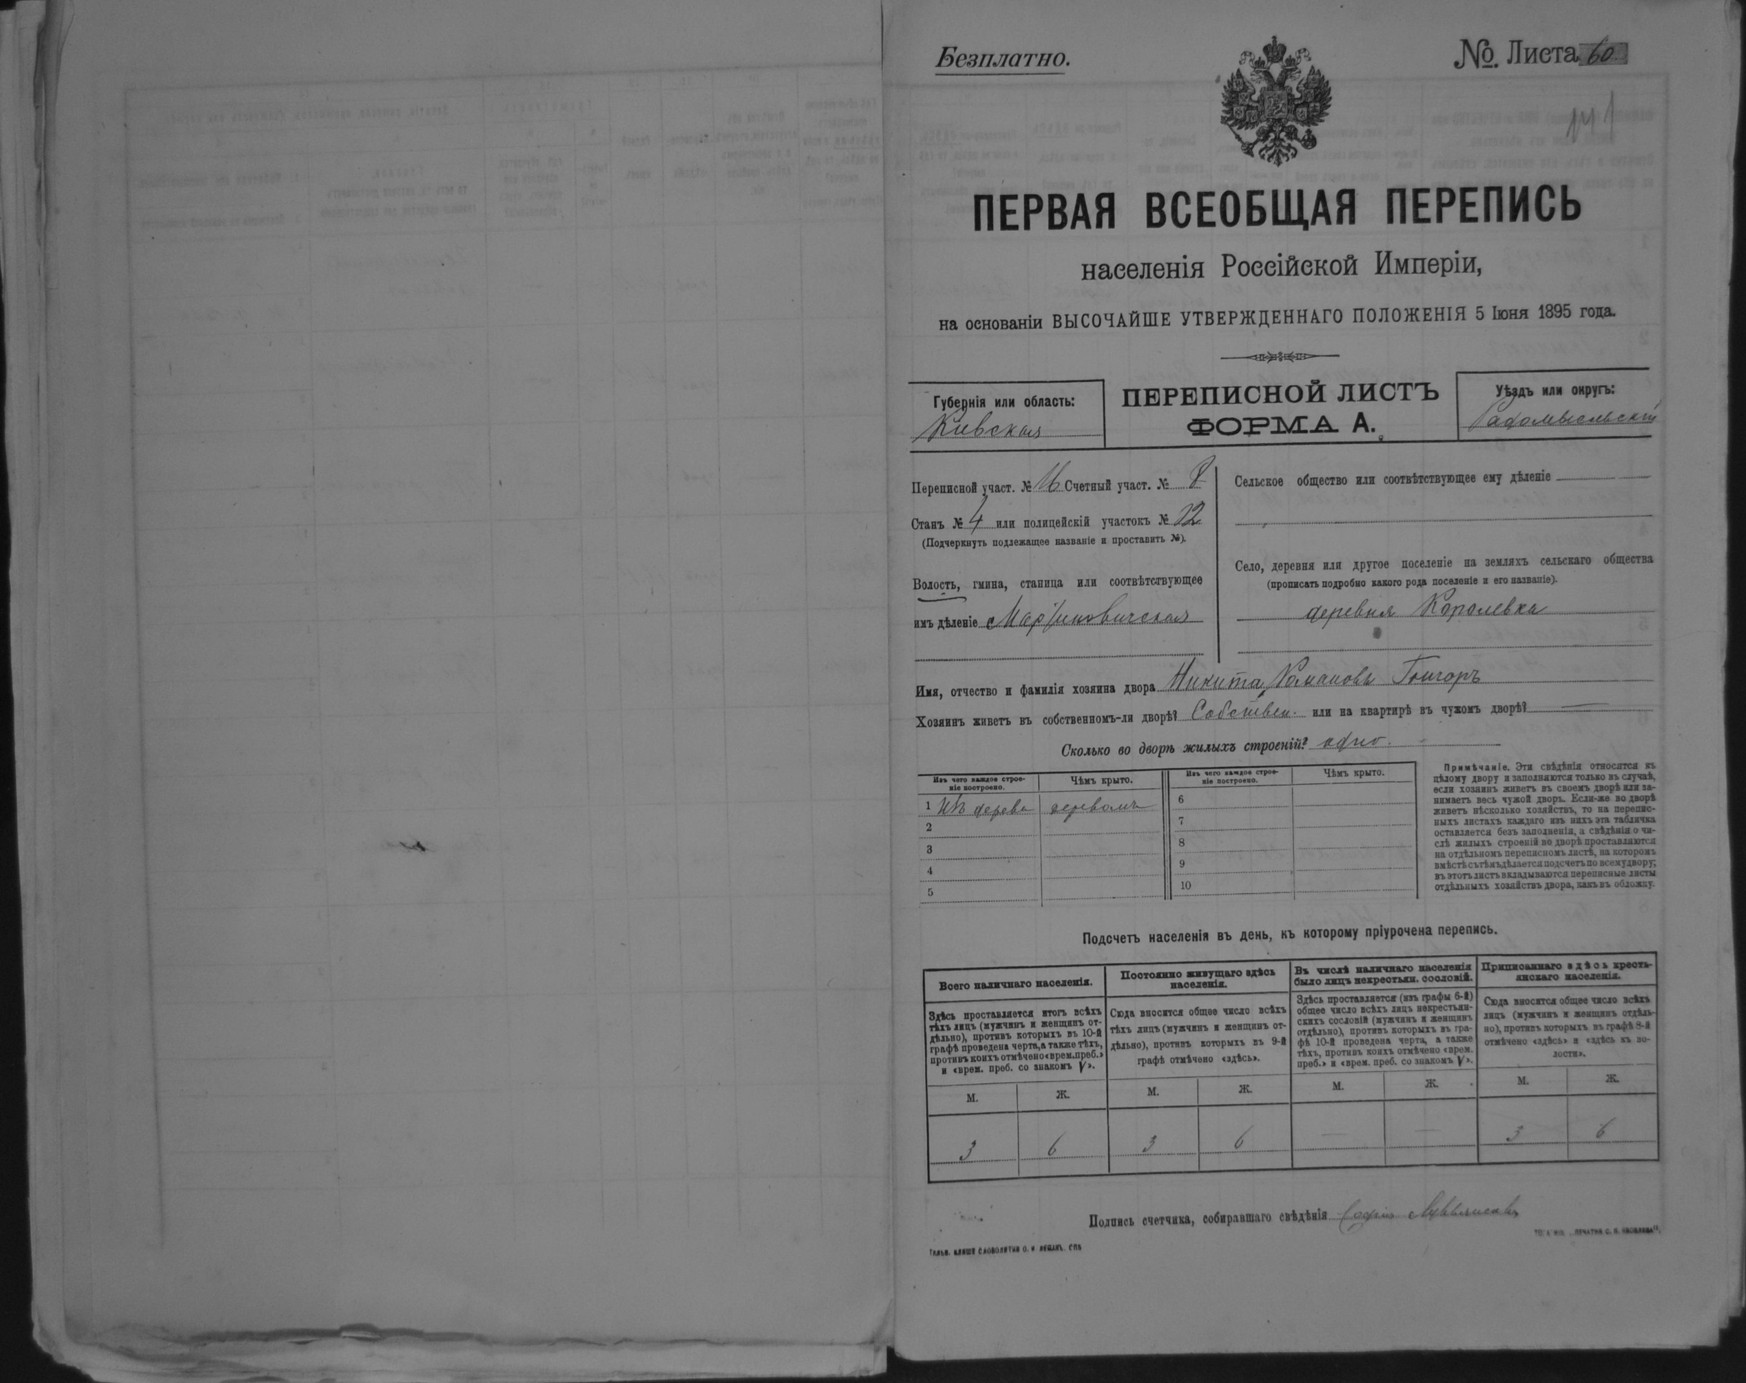 Безплатно.
№. Листа 60
141
ПЕРВАЯ ВСЕОБЩАЯ ПЕРЕПИСЬ
населенія Россійской Имперіи,
на основаніи ВЫСОЧАЙШЕ УТВЕРЖДЕННАГО ПОЛОЖЕНІЯ 5 Іюня 1895 года.
Губернія или область:
Кіевская
ПЕРЕПИСНОЙ ЛИСТЪ
ФОРМА А.
Уѣздъ или округъ:
Радомысльскій
Переписной участ. № 16 Счетный участ. № 8
Станъ № 4 или полицейскій участокъ № 12
(Подчеркнуть подлежащее названіе и проставить №).
Волость, гмина, станица или соотвѣтствующее
имъ дѣленіе Мартиновичская
Сельское общество или соотвѣтствующее ему дѣленіе
Село, деревня или другое поселеніе на земляхъ сельскаго общества
(прописать подробно какого рода поселеніе и его названіе).
деревня Королевка
Имя, отчество и фамилія хозяина двора Никита Романовъ
Хозяинъ живетъ въ собственномъ-ли дворѣ? Собствен. или на квартирѣ въ чужомъ дворѣ? —
Сколько во дворѣ жилыхъ строеній? одно.
Изъ чего каждое строе-
ніе построено.
Чѣмъ крыто.
Изъ чего каждое строе-
ніе построено.
Чѣмъ крыто.
1 Изъ дерева деревомъ 6
2 7
3 8
4 9
5 10
Примѣчаніе. Эти свѣдѣнія относятся къ
цѣлому двору и заполняются только въ случаѣ,
если хозяинъ живетъ въ своемъ дворѣ или за-
нимаетъ весь чужой дворъ. Если-же во дворѣ
живетъ нѣсколько хозяйствъ, то на перепис-
ныхъ листахъ каждаго изъ нихъ эта табличка
оставляется безъ заполненія, а свѣдѣнія о чи-
слѣ жилыхъ строеній во дворѣ проставляются
на отдѣльномъ переписномъ листѣ, на которомъ
вмѣстѣ съ тѣмъ дѣлается подсчетъ по всему двору;
въ этотъ листъ вкладываются переписные листы
отдѣльныхъ хозяйствъ двора, какъ въ обложку.
Подсчетъ населенія въ день, къ которому пріурочена перепись.
Всего наличнаго населенія.
Здѣсь проставляется итогъ всѣхъ
тѣхъ лицъ (мужчинъ и женщинъ от-
дѣльно), противъ которыхъ въ 10-й
графѣ проведена черта, а также тѣхъ,
противъ коихъ отмѣчено «врем. преб.»
и «врем. преб. со знакомъ V».
Постоянно живущаго здѣсь
населенія.
Сюда вносится общее число всѣхъ
тѣхъ лицъ (мужчинъ и женщинъ от-
дѣльно), противъ которыхъ въ 9-й
графѣ отмѣчено «здѣсь».
Въ числѣ наличнаго населенія
было лицъ некрестьян. сословій.
Здѣсь проставляется (изъ графы 6-й)
общее число всѣхъ лицъ некрестьян-
скихъ сословій (мужчинъ и женщинъ
отдѣльно), противъ которыхъ въ гра-
фѣ 10-й проведена черта, а также
тѣхъ, противъ коихъ отмѣчено «врем.
преб.» и «врем. преб. со знакомъ V».
Приписаннаго здѣсь кресть-
янскаго населенія.
Сюда вносится общее число всѣхъ
лицъ (мужчинъ и женщинъ отдѣль-
но), противъ которыхъ въ графѣ 8-й
отмѣчено «здѣсь» и «здѣсь въ во-
лости».
М. Ж. М. Ж. М. Ж. М. Ж.
3 6 3 6 — — 3 6
Подпись счетчика, собиравшаго свѣдѣнія